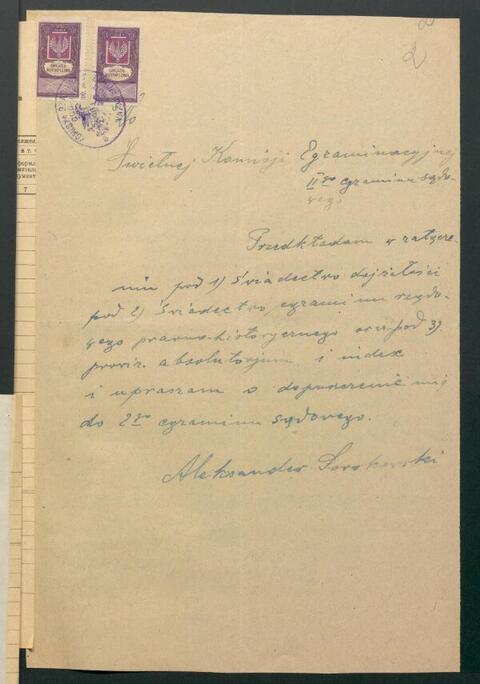 2
Świetnej Komisji Egzaminacyjnej
IIgo egzaminu sądo-
wego
Przedkładam w załącze-
niu pod 1) Świadectwo dojrzałości
pod 2) Świadectwo egzaminu rządo-
wego prawno-historycznego oraz pod 3)
prowiz. absolutorjum i index
i upraszam o dopuszczenie mię
do 2go egzaminu sądowego.
Aleksander